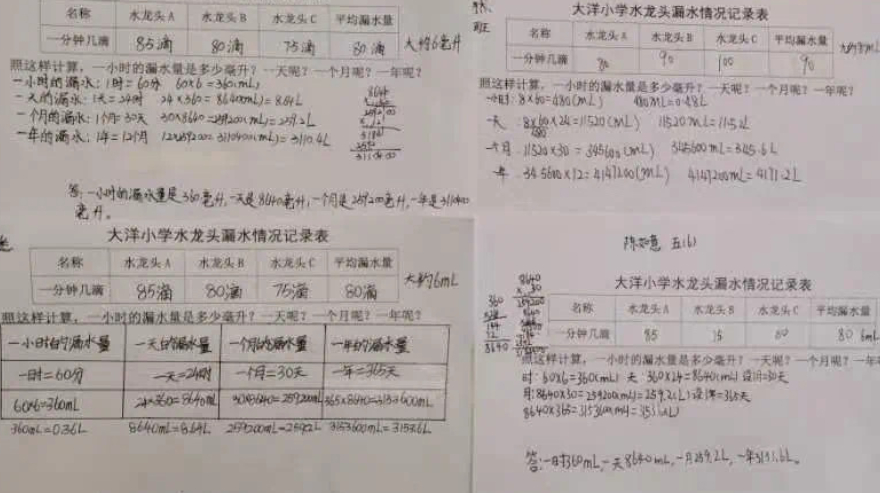 名称 水龙头A 水龙头B 水龙头C 平均漏水量
一分钟几滴 85滴 80滴 75滴 80滴 大约6毫升
照这样计算,一小时的漏水量是多少毫升?一天呢?一个月呢?一年呢?
一小时的漏水:1时=60分 60×6=360(mL)
一天的漏水:1天=24时 24×360=8640(mL)=8.64L
一个月的漏水:1个月=30天 30×8640=259200(mL)=259.2L
一年的漏水:1年=12个月 12×259200=3110400(mL)=3110.4L
答:一小时的漏水量是360毫升,一天是8640毫升,一个月是259200毫升,一年是3110400
毫升。
大洋小学水龙头漏水情况记录表
班
名称 水龙头A 水龙头B 水龙头C 平均漏水量
一分钟几滴 80 90 100 90
照这样计算,一小时的漏水量是多少毫升?一天呢?一个月呢?一年呢?
8×60=480(mL) 480mL=0.48L
一天:8×60×24=11520(mL) 11520mL=11.52L
480
一个月:11520×30=345600(mL) 345600mL=345.6L
一年:345600×12=4147200(mL) 4147200mL=
大洋小学水龙头漏水情况记录表
名称 水龙头A 水龙头B 水龙头C 平均漏水量
一分钟几滴 85滴 80滴 75滴 80滴 大约6mL
照这样计算,一小时的漏水量是多少毫升?一天呢?一个月呢?一年呢?
一小时的漏水量 一天的漏水量 一个月的漏水量 一年的漏水量
一时=60分 一天=24时 一个月=30天 一年=365天
60×6=360mL 24×360=8640mL 30×8640=259200mL 365×8640=3153600mL
360mL=0.36L 8640mL=8.64L 259200mL=259.2L 3153600mL=3153.6L
五(6)
大洋小学水龙头漏水情况记录表
名称 水龙头A 水龙头B 水龙头C 平均漏水量
一分钟几滴 85 75 80 80 6mL
照这样计算,一小时的漏水量是多少毫升?一天呢?一个月呢?一年
时:60×6=360(mL) 天:360×24=8640(mL) 设1月=30天
月:8640×30=259200(mL)=259.2(L) 设1年=365天
答:一时360mL,一天8640mL,一月259.2L,